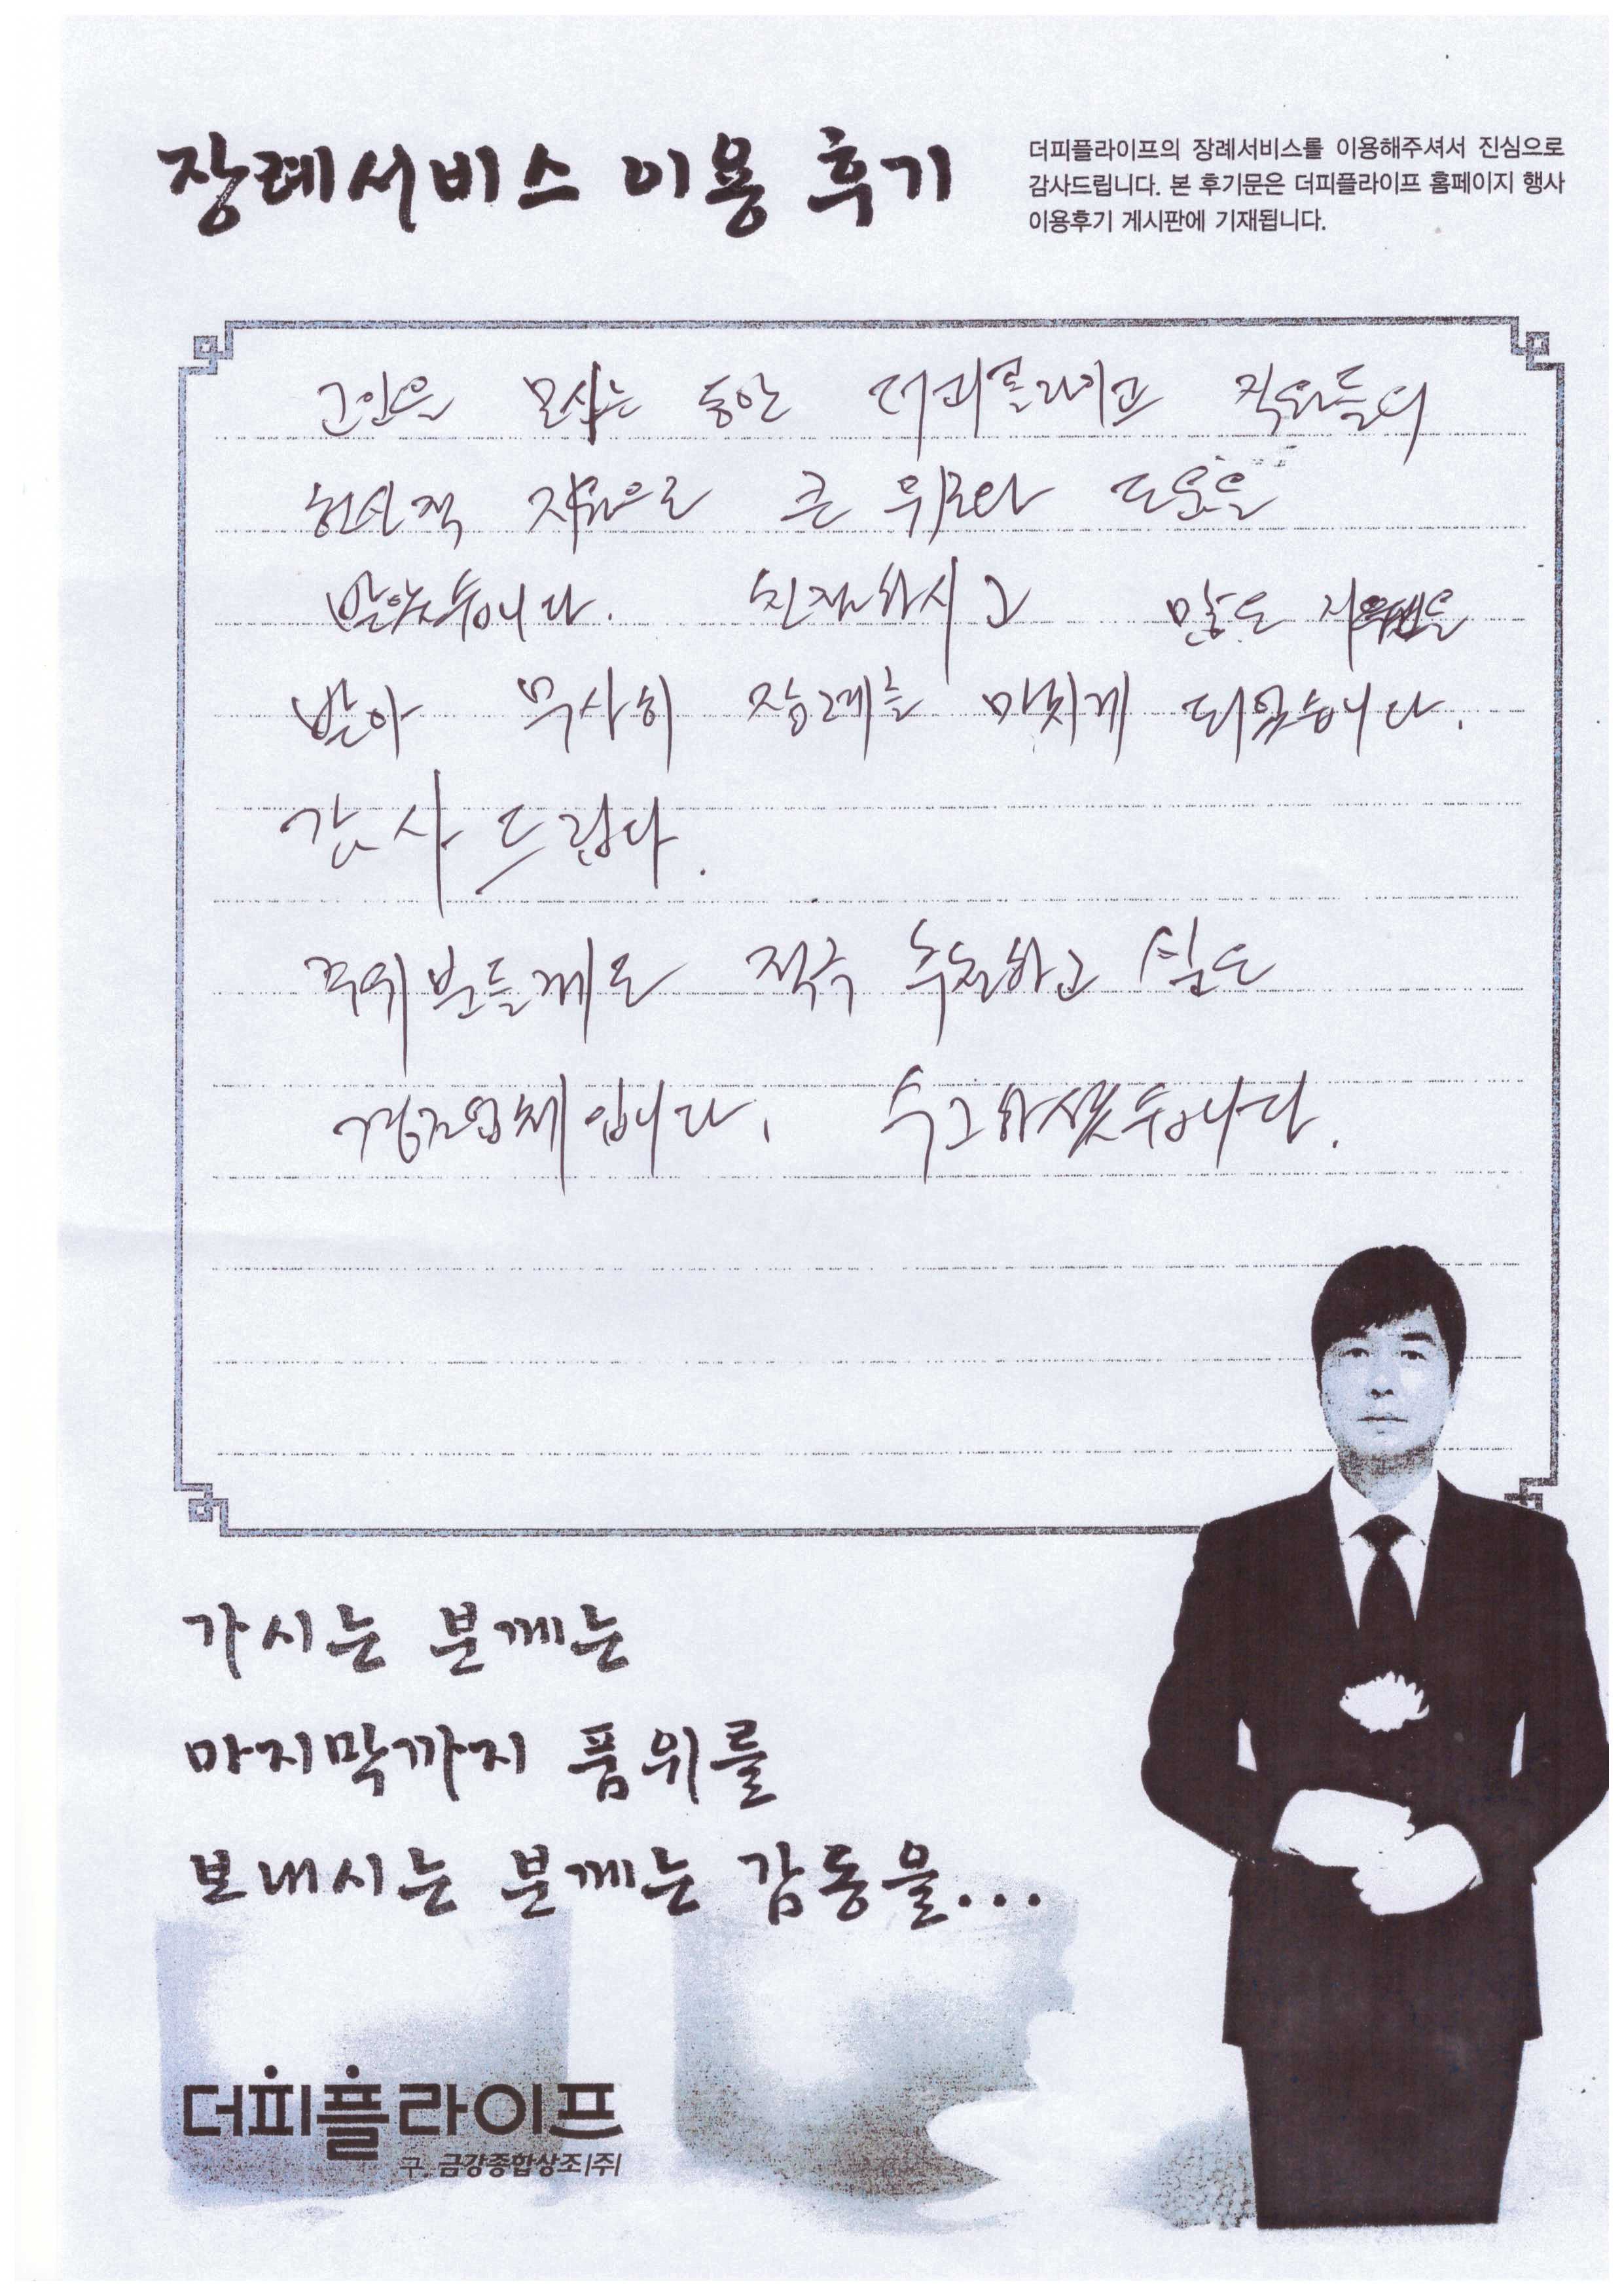 장례서비스 이용 후기
더피플라이프의 장례서비스를 이용해주셔서 진심으로
감사드립니다. 본 후기문은 더피플라이프 홈페이지 행사
이용후기 게시판에 기재됩니다.
고인을 모시는 동안 더피플라이프 직원들의
헌신적 지원으로 큰 위로와 도움을
받았습니다. 친절하시고 많은
받아 무사히 장례를 마치게 되었습니다.
감사드립다.
주위분들께도 적극 추천하고 싶은
입니다. 수고하셨습니다.
가시는 분께는
마지막까지 품위를
보내시는 분께는 감동을...
더피플라이프
구. 금강종합상조|주|